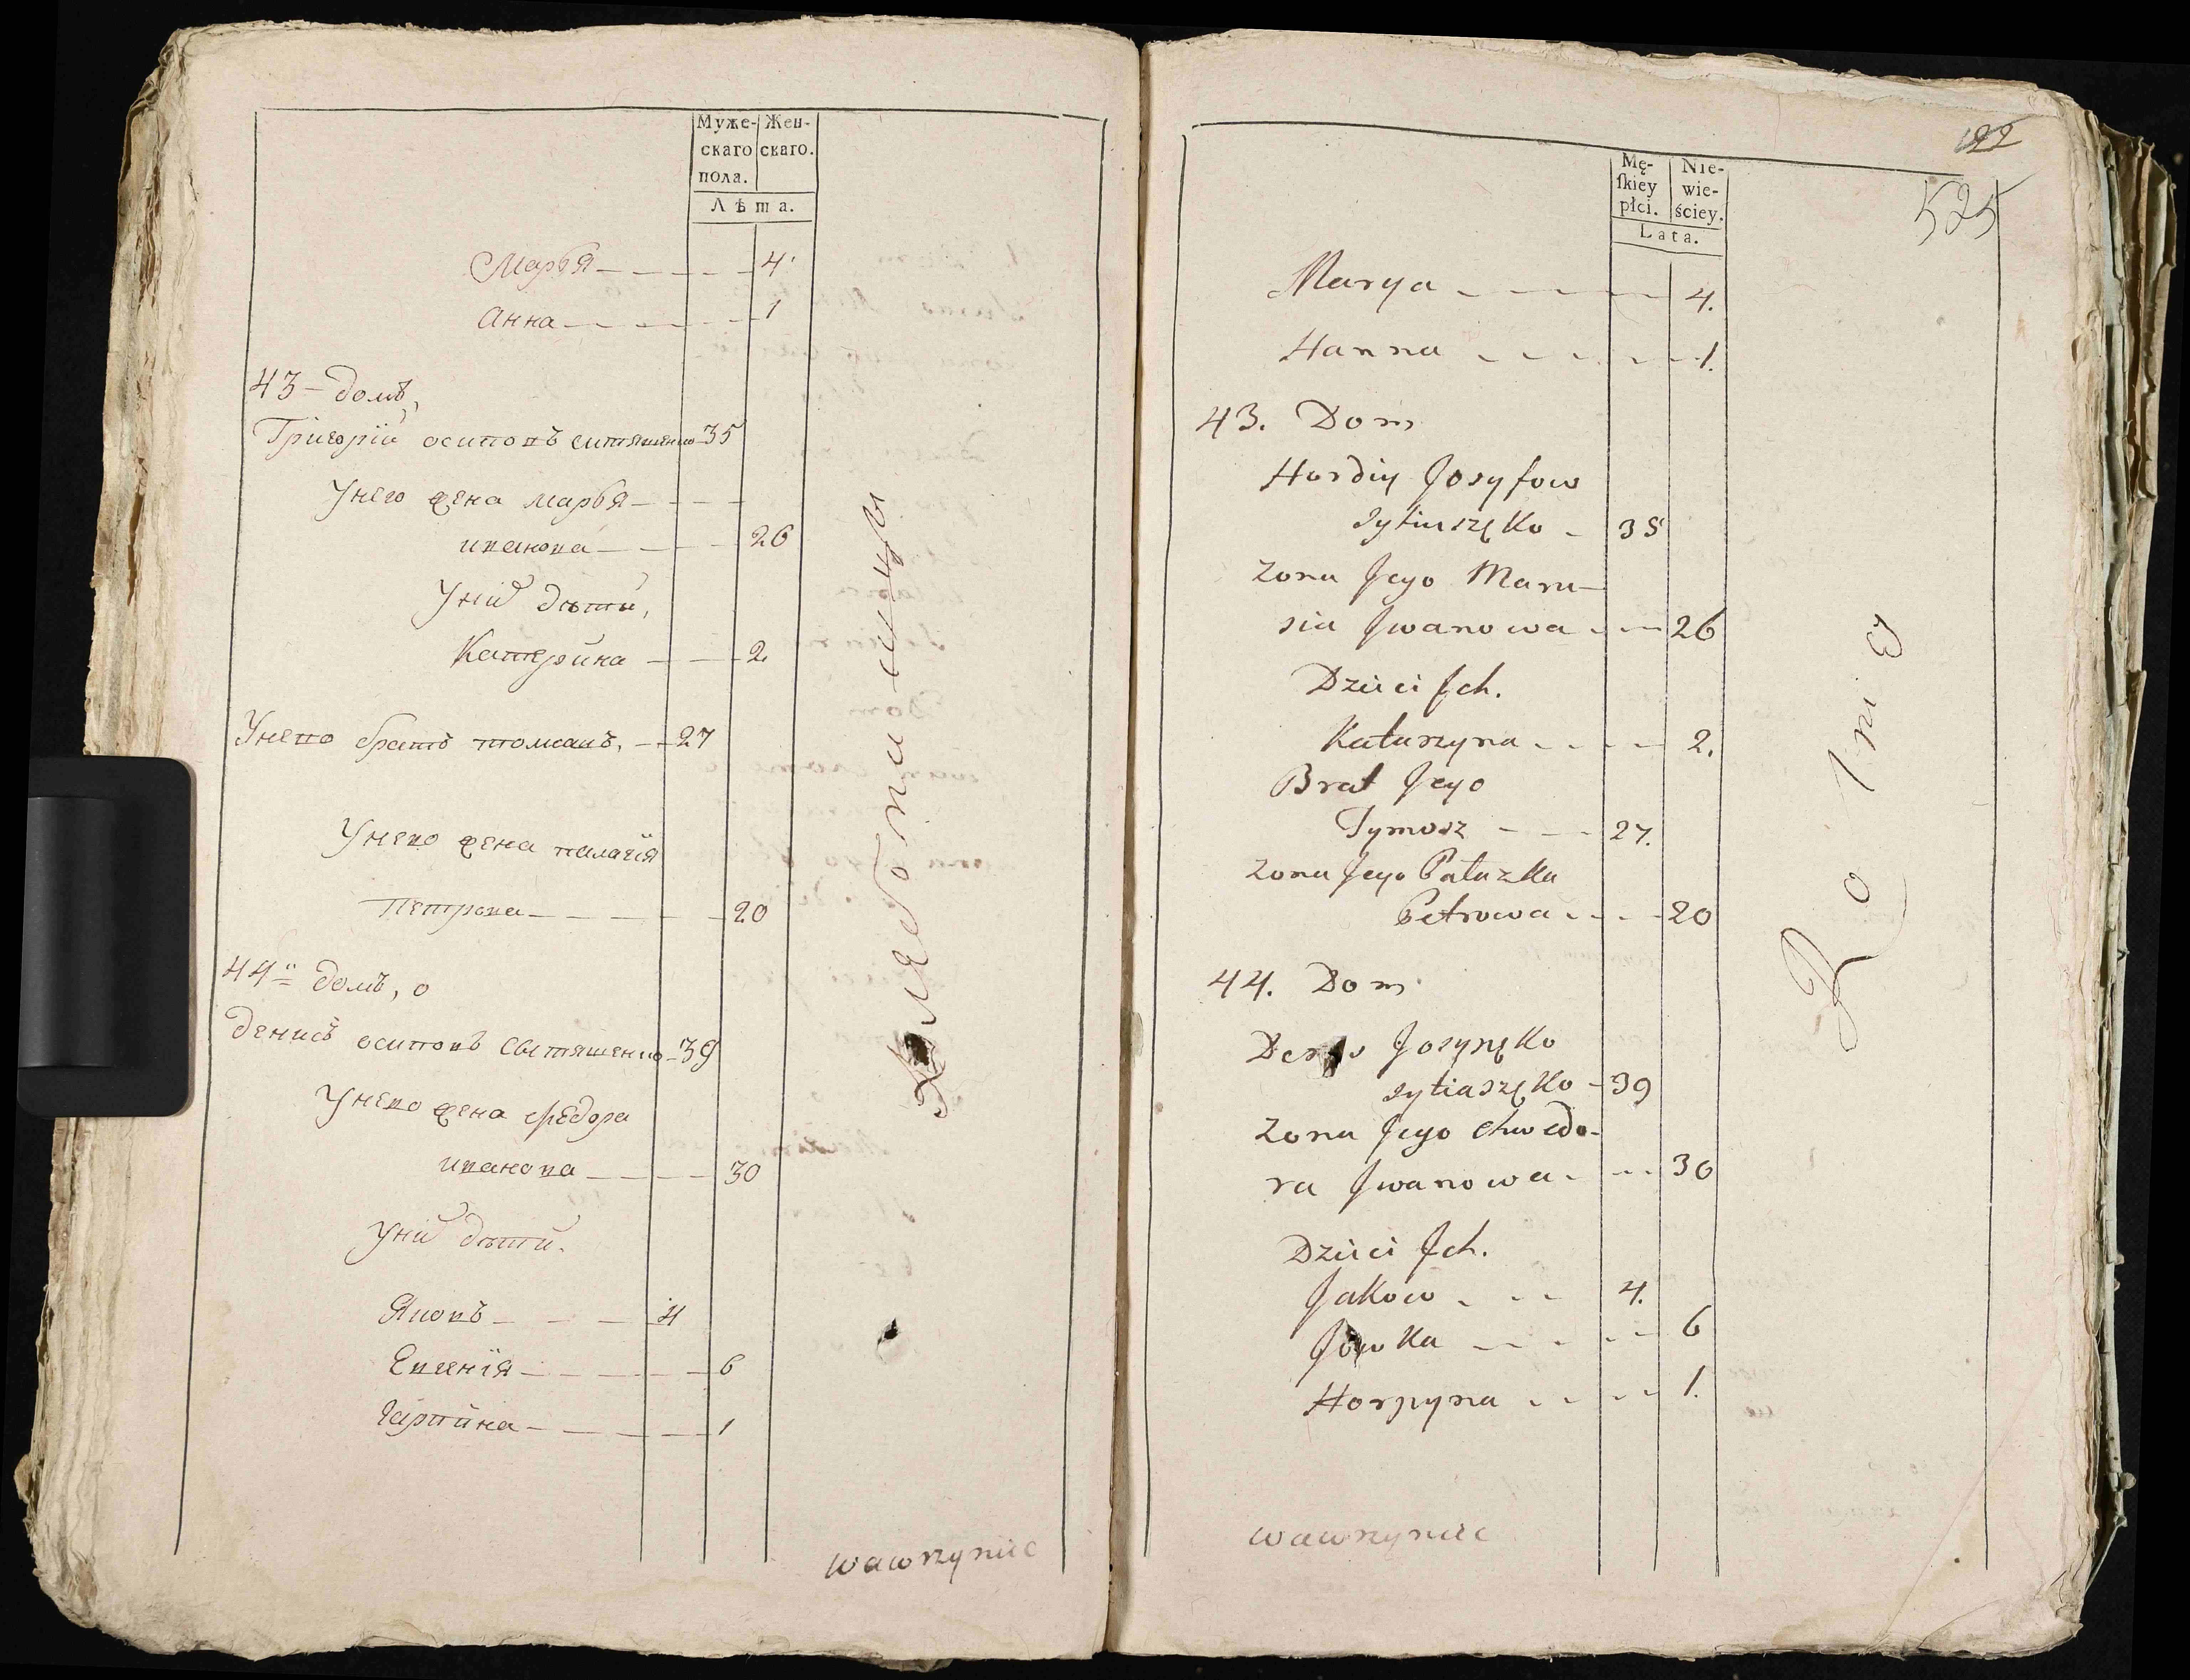 Муже- Жен-
скаго скаго.
пола.
Лѣта.
Марья 4
Анна 1
43 домъ,
Григорій осиповъ ситяшенко 35
Унего жена марья
иванова 26
Уних дѣти,
Катерина 2
Унево братъ томашъ. 27
Унево жена палагія
Петрова 20
44й домъ, о
Денисъ осиповъ сытяшенко 39
Унево жена федора
иванова 30
Уних дѣти.
Яковъ 4
Евгенія 6
Гарпина 1
Хлебопашцы
wawrzyniec
122
525
Mę- Nie-
ſkiey wie-
płci. ściey.
Lata.
Marya 4.
Hanna 1.
43. Dom
Hordiy Josyfow
Sytiaszęko 35
Zona Jego Maru-
sia Jwanowa 26
Dzieci Jch.
Katarzyna 2.
Brat Jego
Tymosz 27.
Zona Jego Pałazka
Petrowa 20
44. Dom
Josypęko
Sytiaszęko 39
Zona Jego Chwedo-
ra Jwanowa 30
Dzieci Jch.
Jakow 4.
Jowka 6
Horpyna 1.
Rolnicy
wawrzyniec